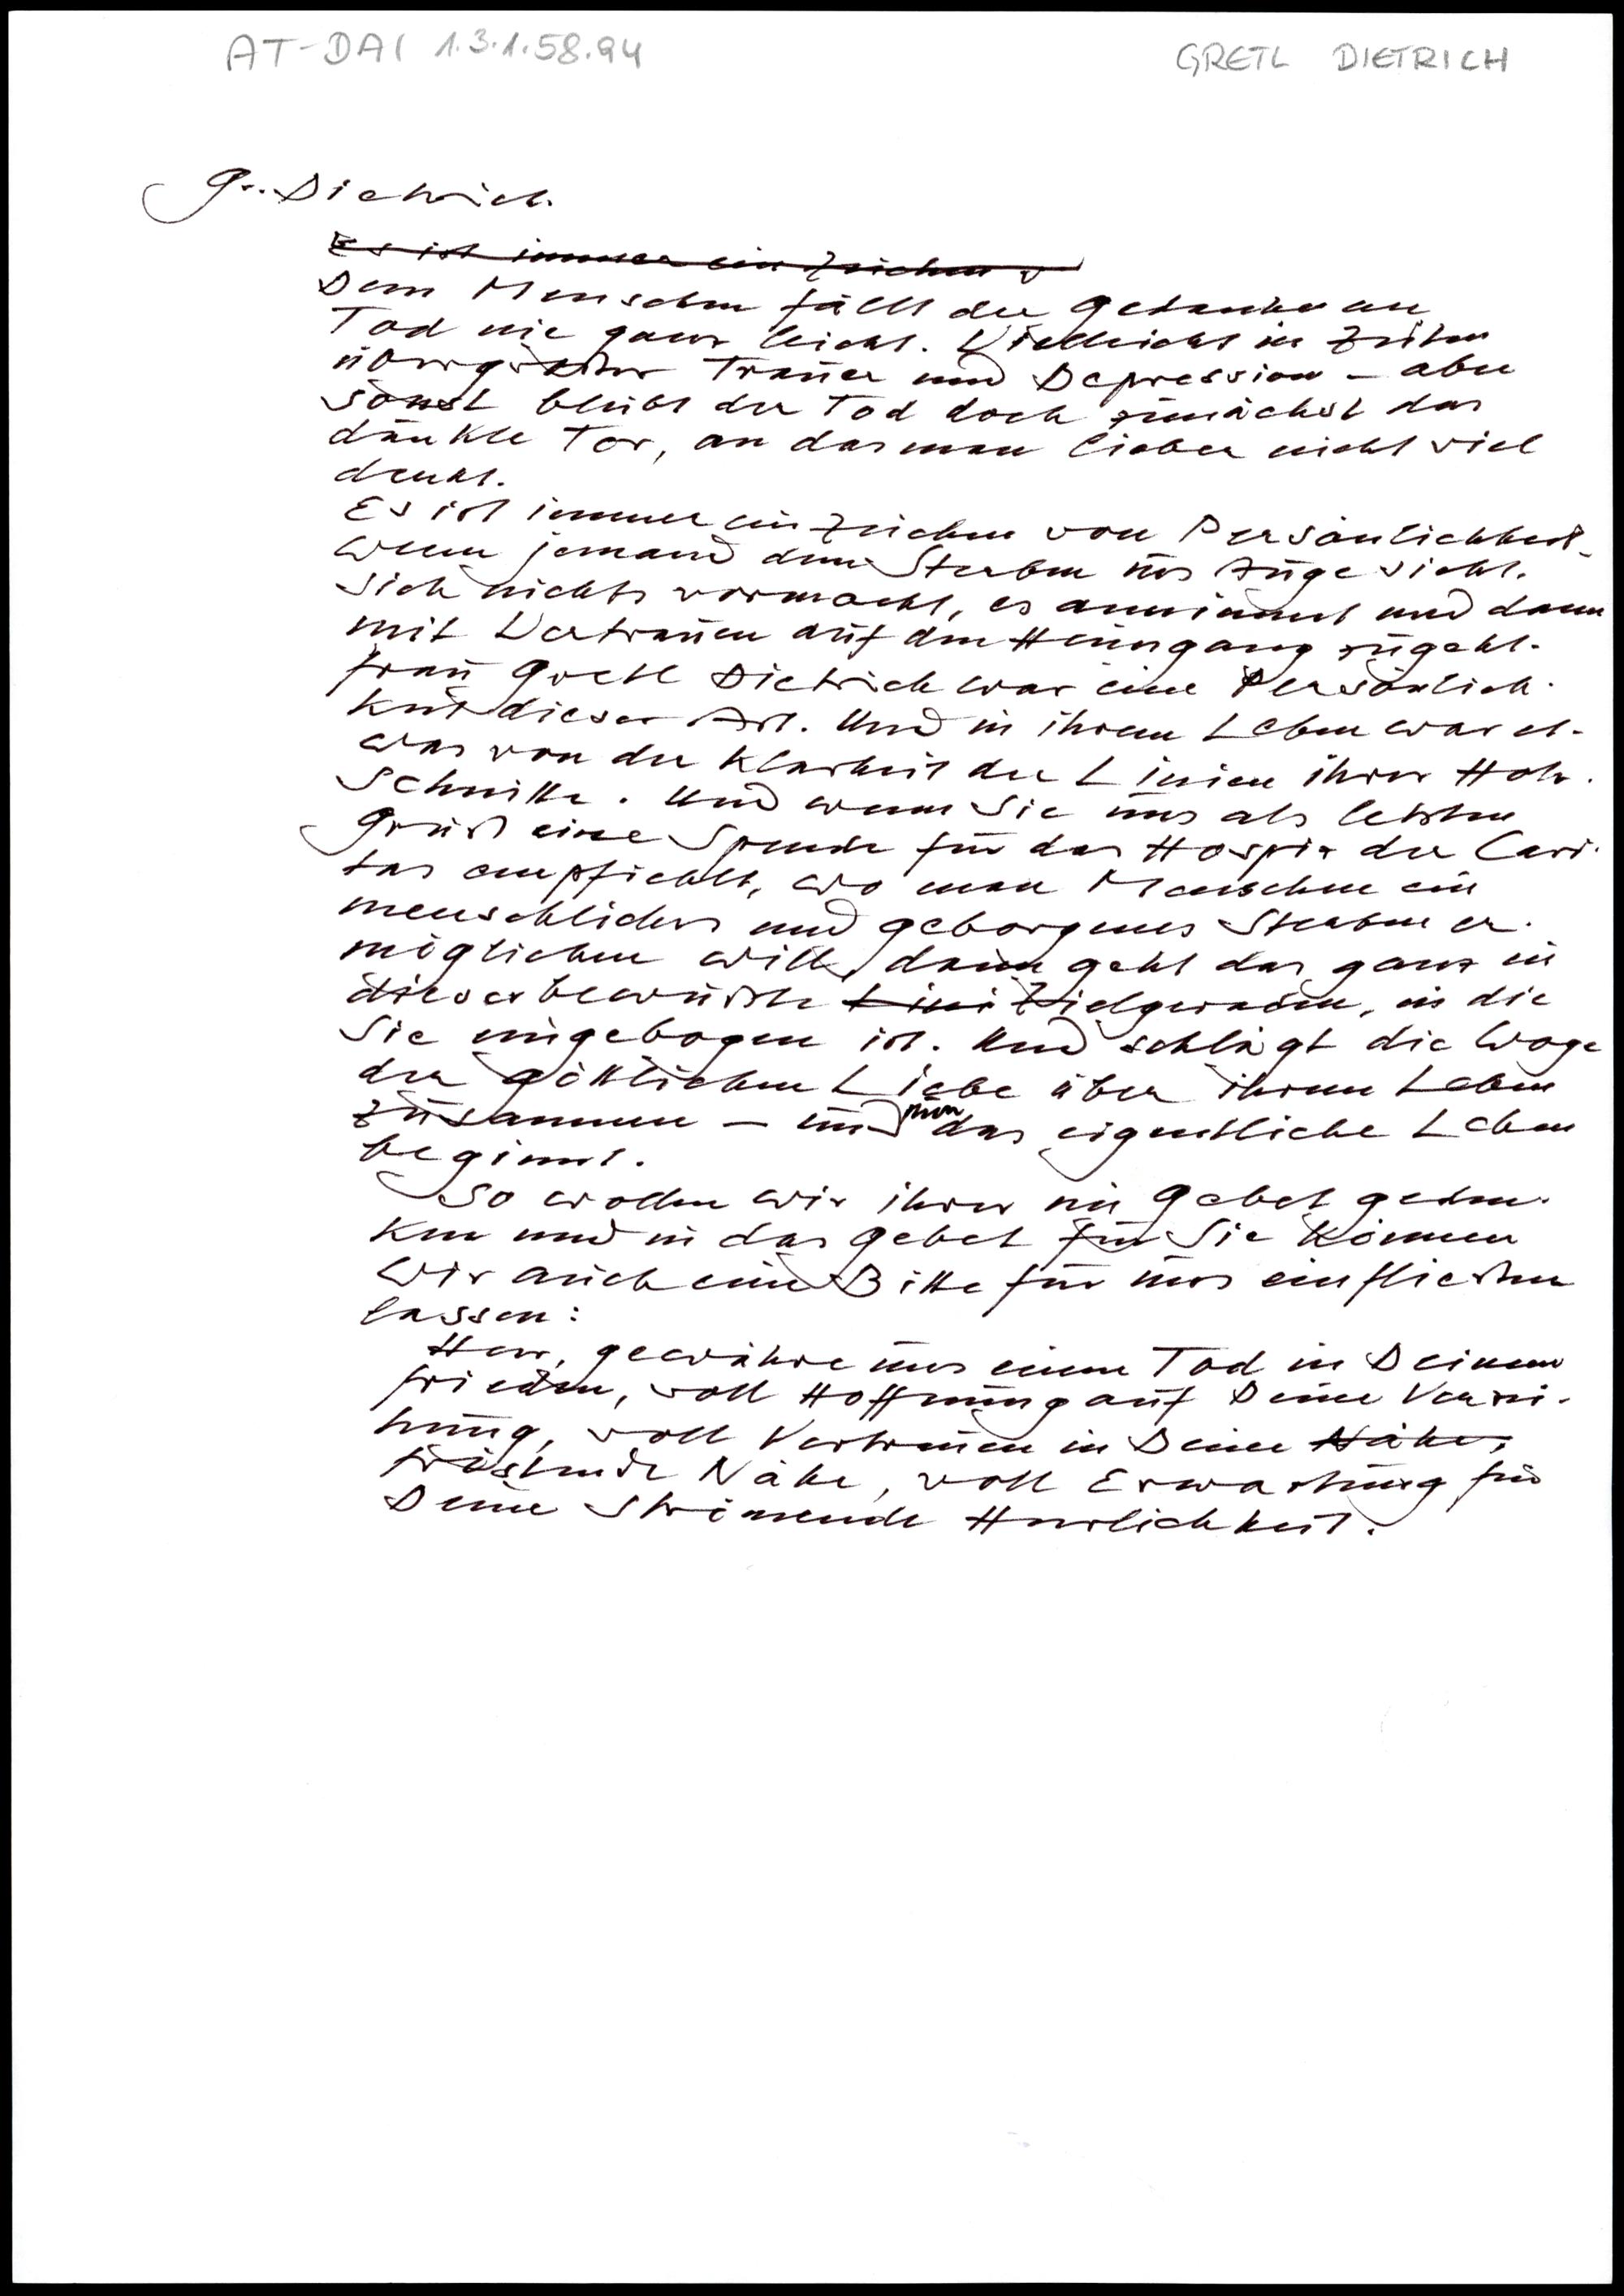 AT-DAI 1.3.1.58.94
GRETL DIETRICH
G.. Dietrich.
Es ist immer ein Zeichen v
Dem Menschen fällt der Gedanke an
Tod nie ganz leicht. Vielleicht in Zeiten
übergroßer Trauer und Depression – aber
sonst bleibt der Tod doch zunächst das
dunkle Tor, an das man lieber nicht viel
denkt.
Es ist immer ein Zeichen von Persönlichkeit,
wenn jemand dem Sterben ins Angesicht.
sich nichts vormacht, es annimmt und dann
mit Vertrauen auf den Heimgang zugeht.
Frau Gretl Dietrich war eine Persönlich-
keit dieser Art. Und in ihrem Leben war et-
was von der Klarheit der Linien ihrer Holz-
schnitte. Und wenn Sie uns als letzten
Gruß eine Spende für das Hospiz der Cari-
tas empfiehlt, wo man Menschen ein
menschliches und geborgenes Sterben er-
möglichen will, dann geht das ganz in
dieser bewußte Lini Zielgeraden, in die
Sie eingebogen ist. Und schlägt die Woge
der göttlichen Liebe über ihrem Leben
zusammen – und nun das eigentliche Leben
beginnt.
So wollen wir ihrer im Gebet geden-
ken und in das Gebet für Sie können
wir auch eine Bitte für uns einfließen
lassen:
Herr, gewähre uns einen Tod in Deinem
Frieden, voll Hoffnung auf Deine Verzei-
hung, voll Vertrauen in Deine Nähe,
tröstende Nähe, voll Erwartung für
Deine strömende Herrlichkeit.